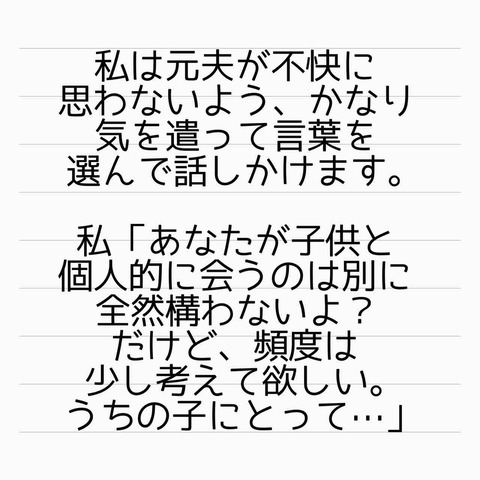 私は元夫が不快に
思わないよう、かなり
気を遣って言葉を
選んで話しかけます。
私「あなたが子供と
個人的に会うのは別に
全然構わないよ？
だけど、頻度は
少し考えて欲しい。
うちの子にとって…」